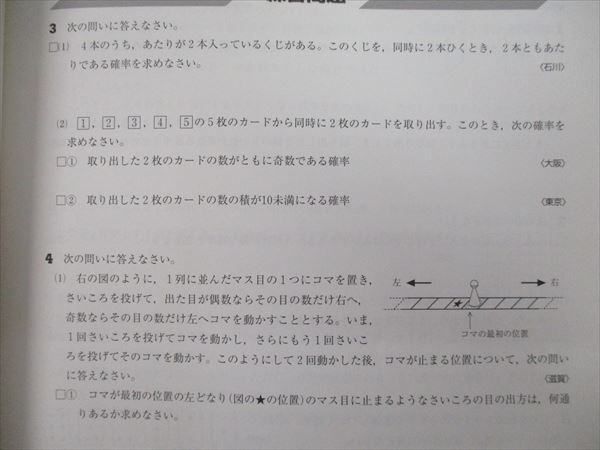 3 次の問いに答えなさい。
□(1) 4本のうち，あたりが2本入っているくじがある。このくじを，同時に2本ひくとき，2本ともあた
りである確率を求めなさい。
〈石川〉
(2) 1，2，3，4，5の5枚のカードから同時に2枚のカードを取り出す。このとき，次の確率を
求めなさい。
□① 取り出した2枚のカードの数がともに奇数である確率
〈大阪〉
□② 取り出した2枚のカードの数の積が10未満になる確率
〈東京〉
4 次の問いに答えなさい。
(1) 右の図のように，1列に並んだマス目の1つにコマを置き，
さいころを投げて，出た目が偶数ならその目の数だけ右へ，
奇数ならその目の数だけ左へコマを動かすこととする。いま，
1回さいころを投げてコマを動かし，さらにもう1回さいこ
ろを投げてそのコマを動かす。このようにして2回動かした後，コマが止まる位置について，次の問い
に答えなさい。
〈滋賀〉
左 右
★
コマの最初の位置
□① コマが最初の位置の左どなり(図の★の位置)のマス目に止まるようなさいころの目の出方は，何通
りあるか求めなさい。